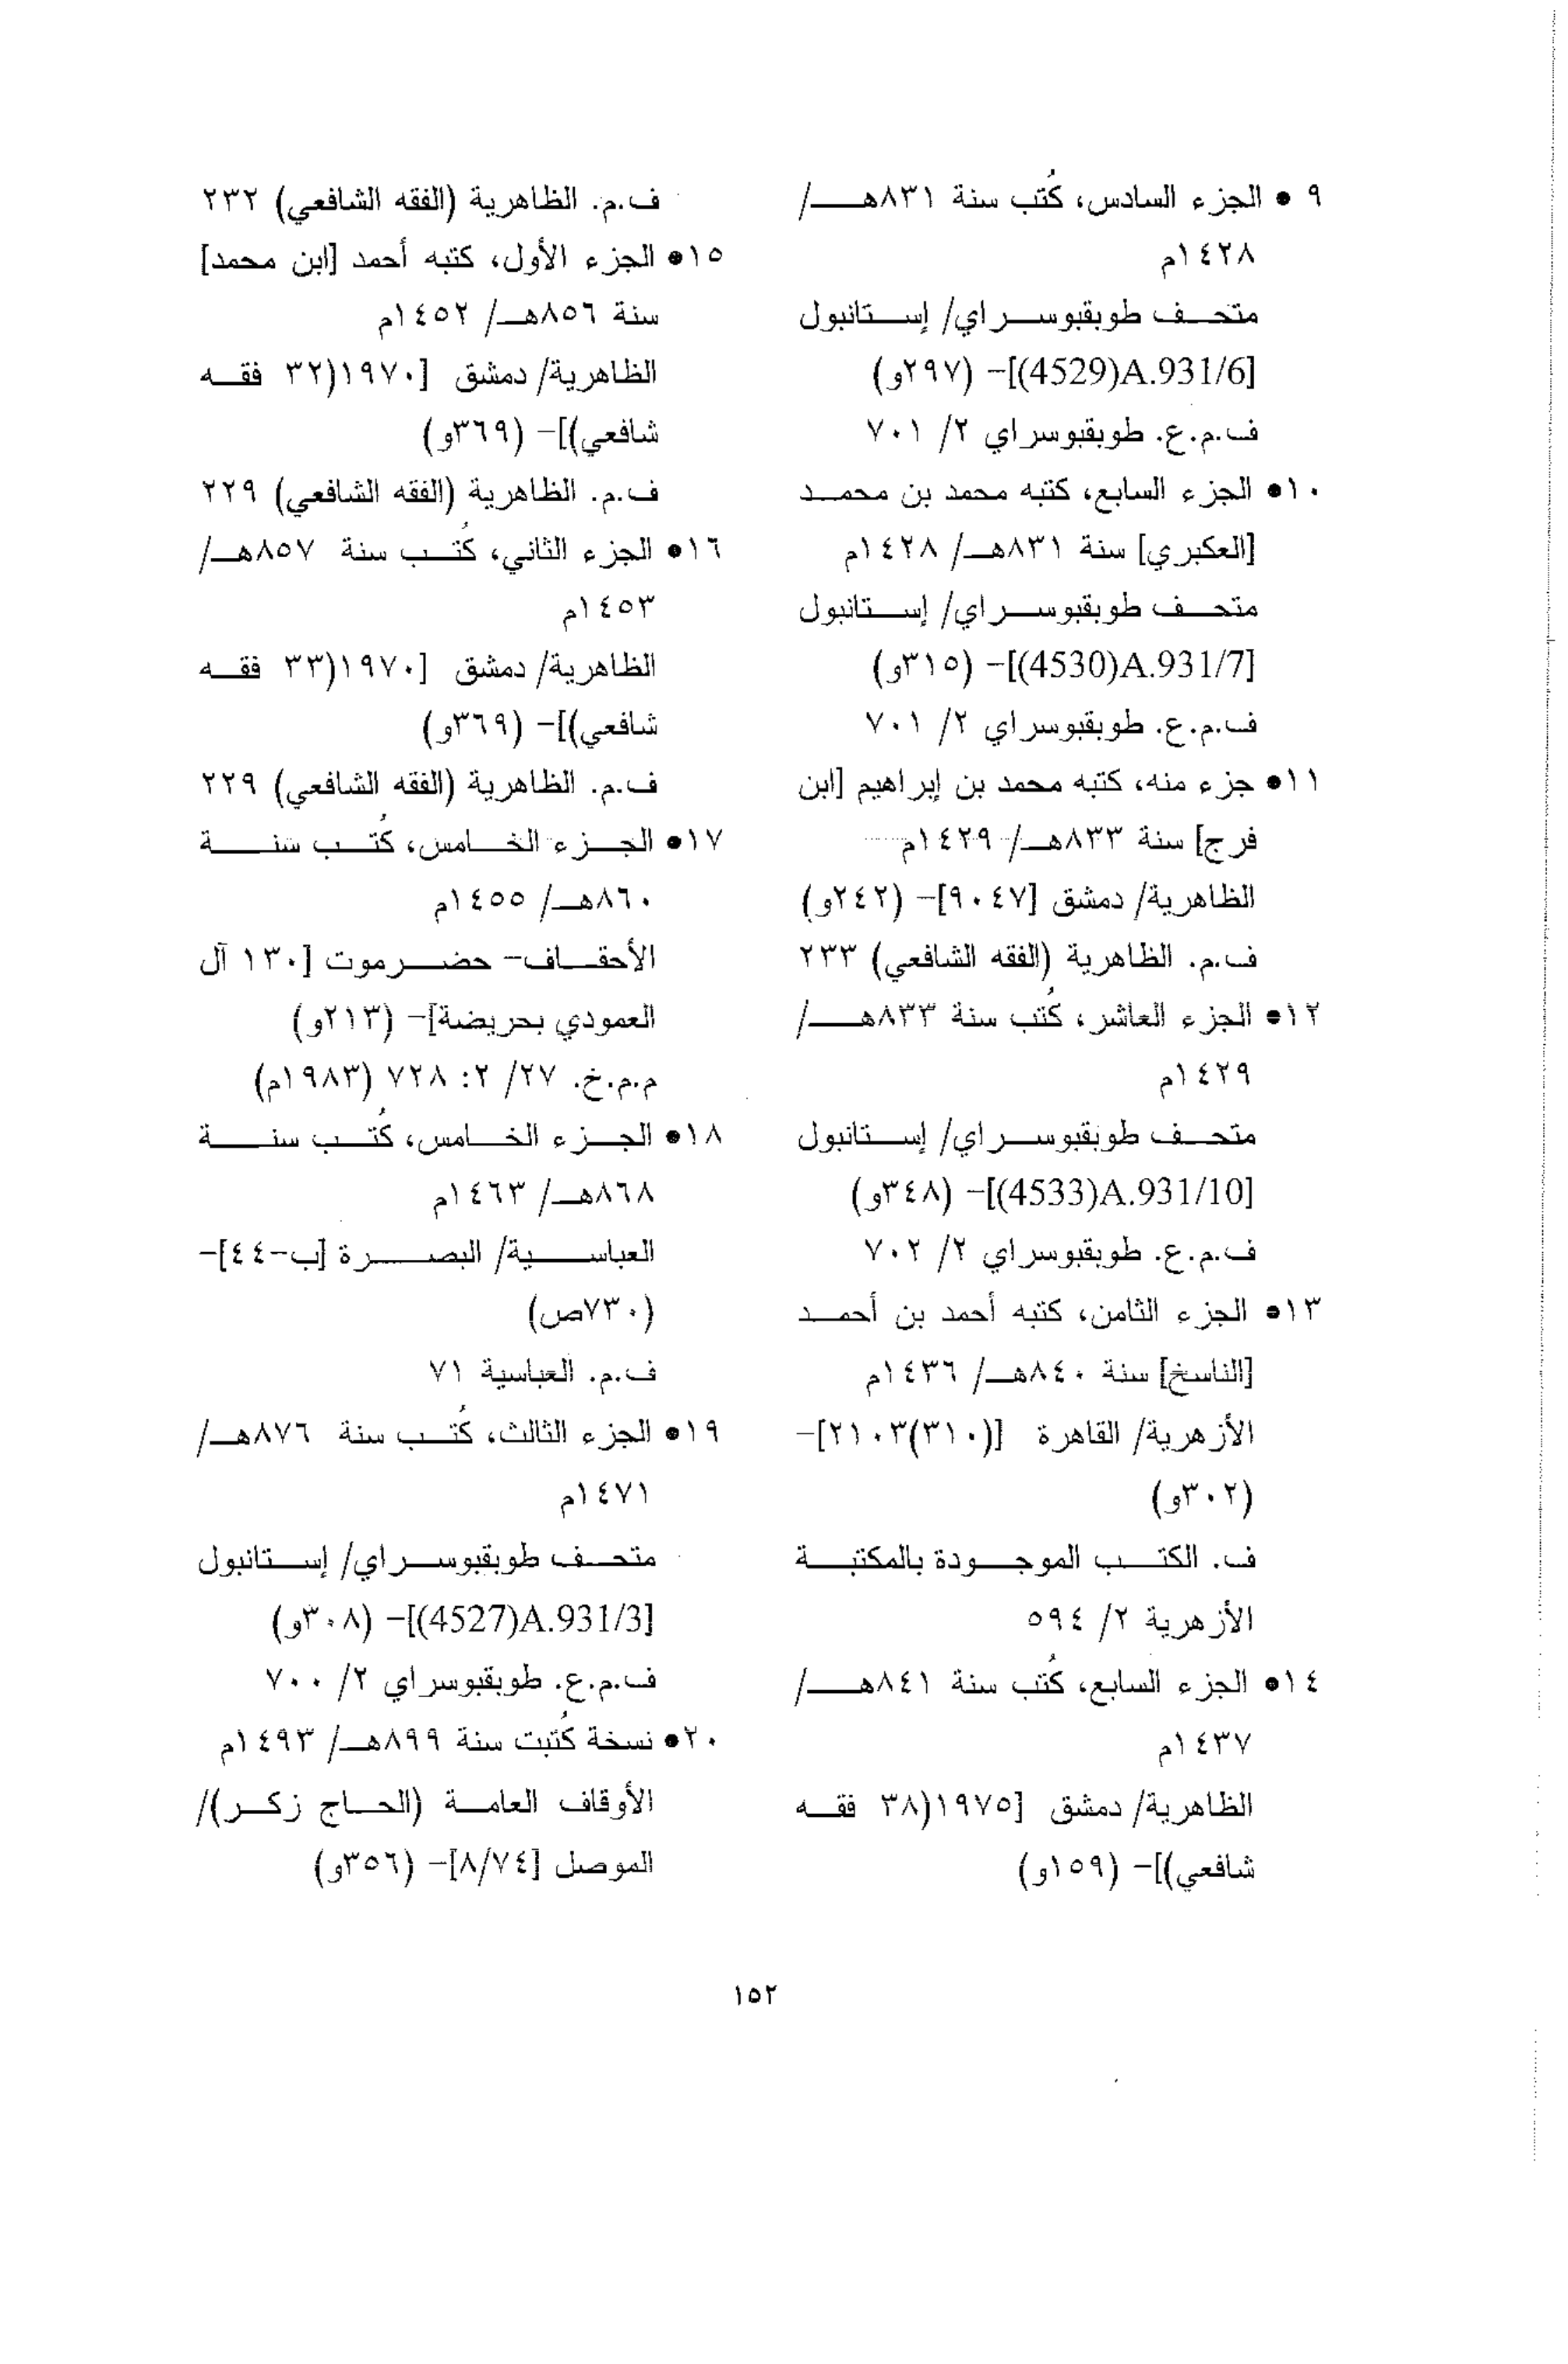 ٩ • الجزء السادس، كُتب سنة ٨٣١هـ/
١٤٢٨م
متحف طوبقبوسراي/ إستانبول
[A.931/6(4529)]- (٢٩٧و)
ف.م.ع. طوبقبوسراي ٢/ ٧٠١
١٠• الجزء السابع، كتبه محمد بن محمد
[العكبري] سنة ٨٣١هـ/ ١٤٢٨م
متحف طوبقبوسراي/ إستانبول
[A.931/7(4530)]- (٣١٥و)
ف.م.ع. طوبقبوسراي ٢/ ٧٠١
١١• جزء منه، كتبه محمد بن إبراهيم [ابن
فرج] سنة ٨٣٣هـ/ ١٤٢٩م
الظاهرية/ دمشق [٩٠٤٧]- (٢٤٢و)
ف.م. الظاهرية (الفقه الشافعي) ٢٣٣
١٢• الجزء العاشر، كُتب سنة ٨٣٣هـ/
١٤٢٩م
متحف طوبقبوسراي/ إستانبول
[A.931/10(4533)]- (٣٤٨و)
ف.م.ع. طوبقبوسراي ٢/ ٧٠٢
١٣• الجزء الثامن، كتبه أحمد بن أحمد
[الناسخ] سنة ٨٤٠هـ/ ١٤٣٦م
الأزهرية/ القاهرة [(٣١٠)٢١٠٣]-
(٣٠٢و)
ف. الكتب الموجودة بالمكتبة
الأزهرية ٢/ ٥٩٤
١٤• الجزء السابع، كُتب سنة ٨٤١هـ/
١٤٣٧م
الظاهرية/ دمشق [١٩٧٥(٣٨ فقه
شافعي)]- (١٥٩و)
ف.م. الظاهرية (الفقه الشافعي) ٢٣٢
١٥• الجزء الأول، كتبه أحمد [ابن محمد]
سنة ٨٥٦هـ/ ١٤٥٢م
الظاهرية/ دمشق [١٩٧٠(٣٢ فقه
شافعي)]- (٣٦٩و)
ف.م. الظاهرية (الفقه الشافعي) ٢٢٩
١٦• الجزء الثاني، كُتب سنة ٨٥٧هـ/
١٤٥٣م
الظاهرية/ دمشق [١٩٧٠(٣٣ فقه
شافعي)]- (٣٦٩و)
ف.م. الظاهرية (الفقه الشافعي) ٢٢٩
١٧• الجزء الخامس، كُتب سنة
٨٦٠هـ/ ١٤٥٥م
الأحقاف- حضرموت [١٣٠ آل
العمودي بحريضة]- (٢١٣و)
م.م.خ. ٢٧/ ٢: ٧٢٨ (١٩٨٣م)
١٨• الجزء الخامس، كُتب سنة
٨٦٨هـ/ ١٤٦٣م
العباسية/ البصرة [ب-٤٤]-
(٧٣٠ص)
ف.م. العباسية ٧١
١٩• الجزء الثالث، كُتب سنة ٨٧٦هـ/
١٤٧١م
متحف طوبقبوسراي/ إستانبول
[A.931/3(4527)]- (٣٠٨و)
ف.م.ع. طوبقبوسراي ٢/ ٧٠٠
٢٠• نسخة كُتبت سنة ٨٩٩هـ/ ١٤٩٣م
الأوقاف العامة (الحاج زكر)/
الموصل [٨/٧٤]- (٣٥٦و)
١٥٢